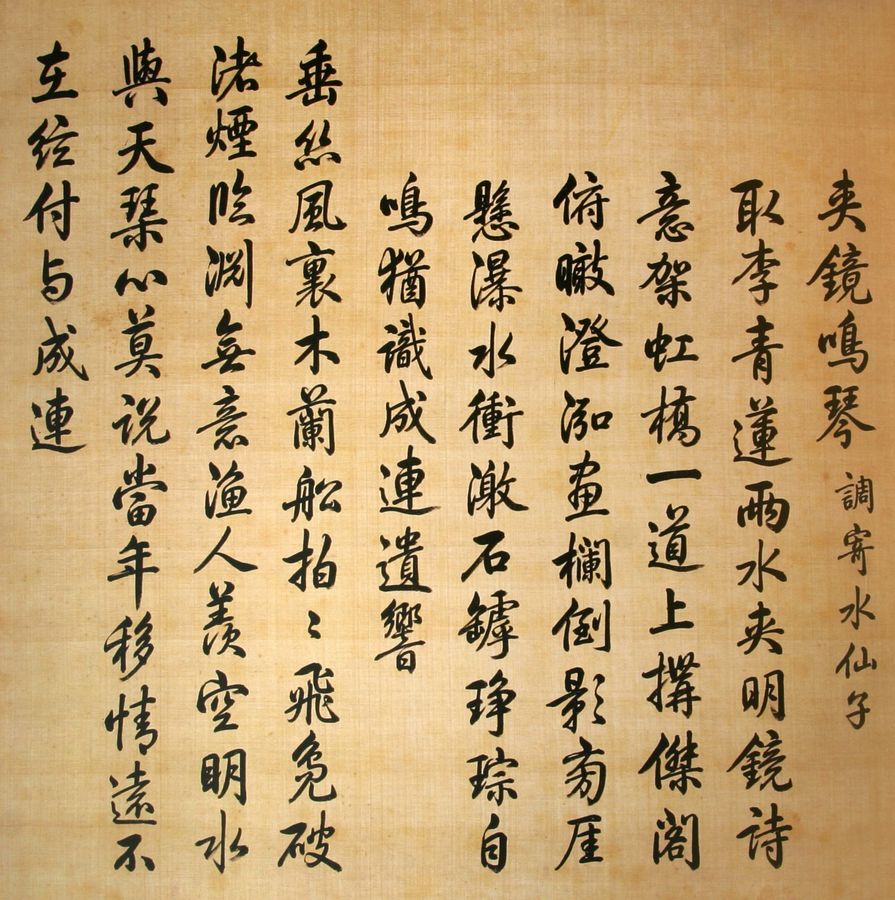 夾鏡鳴琴 調寄水仙子
取李青蓮兩水夾明鏡詩
意架虹橋一道上搆傑閣
俯瞰澄泓畫欄倒影旁厓
懸瀑水衝激石罅琤琮自
鳴猶識成連遺響
垂絲風裏木蘭船拍〻飛鳧破
渚煙臨淵無意漁人羨空明水
與天琹心莫說當年移情遠不
在絃付与成連